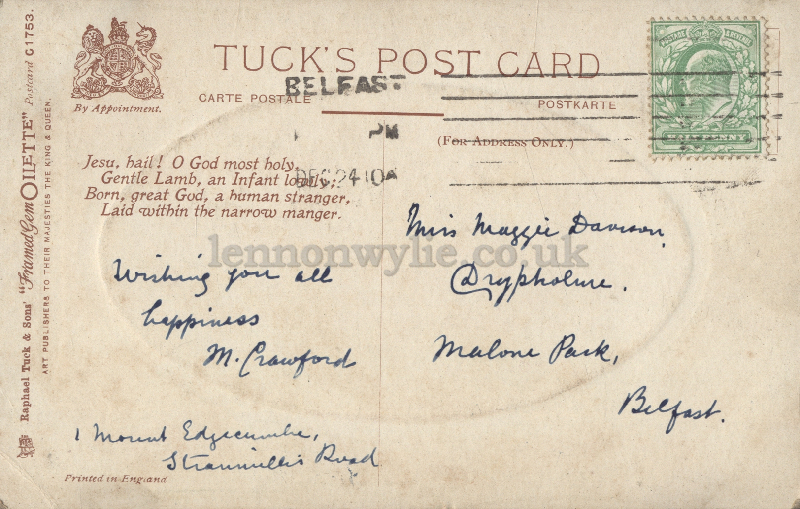 TUCK'S POST CARD
By Appointment.
CARTE POSTALE
POSTKARTE
(FOR ADDRESS ONLY.)
BELFAST
PM
DEC 24 10
POSTAGE & REVENUE
Jesu, hail! O God most holy,
Gentle Lamb, an Infant lowly,
Born, great God, a human stranger,
Laid within the narrow manger.
lennonwylie.co.uk
Wishing you all
happiness
M. Crawford
1 Mount Edgecumbe,
Stranmillis Road
Miss Maggie Davison,
Drypholme.
Malone Park,
Belfast.
Printed in England
Raphael Tuck & Sons' "Framed Gem OILETTE" Postcard C1753.
ART PUBLISHERS TO THEIR MAJESTIES THE KING & QUEEN.